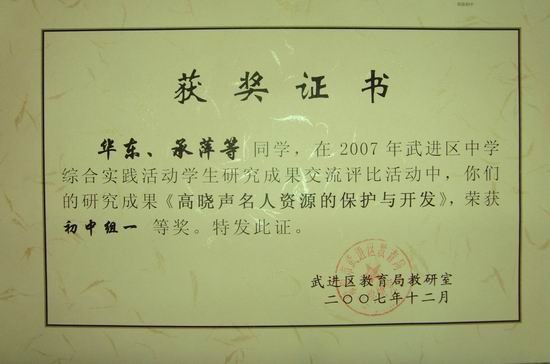 获奖证书
华东、承萍等同学，在2007年武进区中学
综合实践活动学生研究成果交流评比活动中，你们
的研究成果《高晓声名人资源的保护与开发》，荣获
初中组一等奖。特发此证。
武进区教育局教研室
二〇〇七年十二月